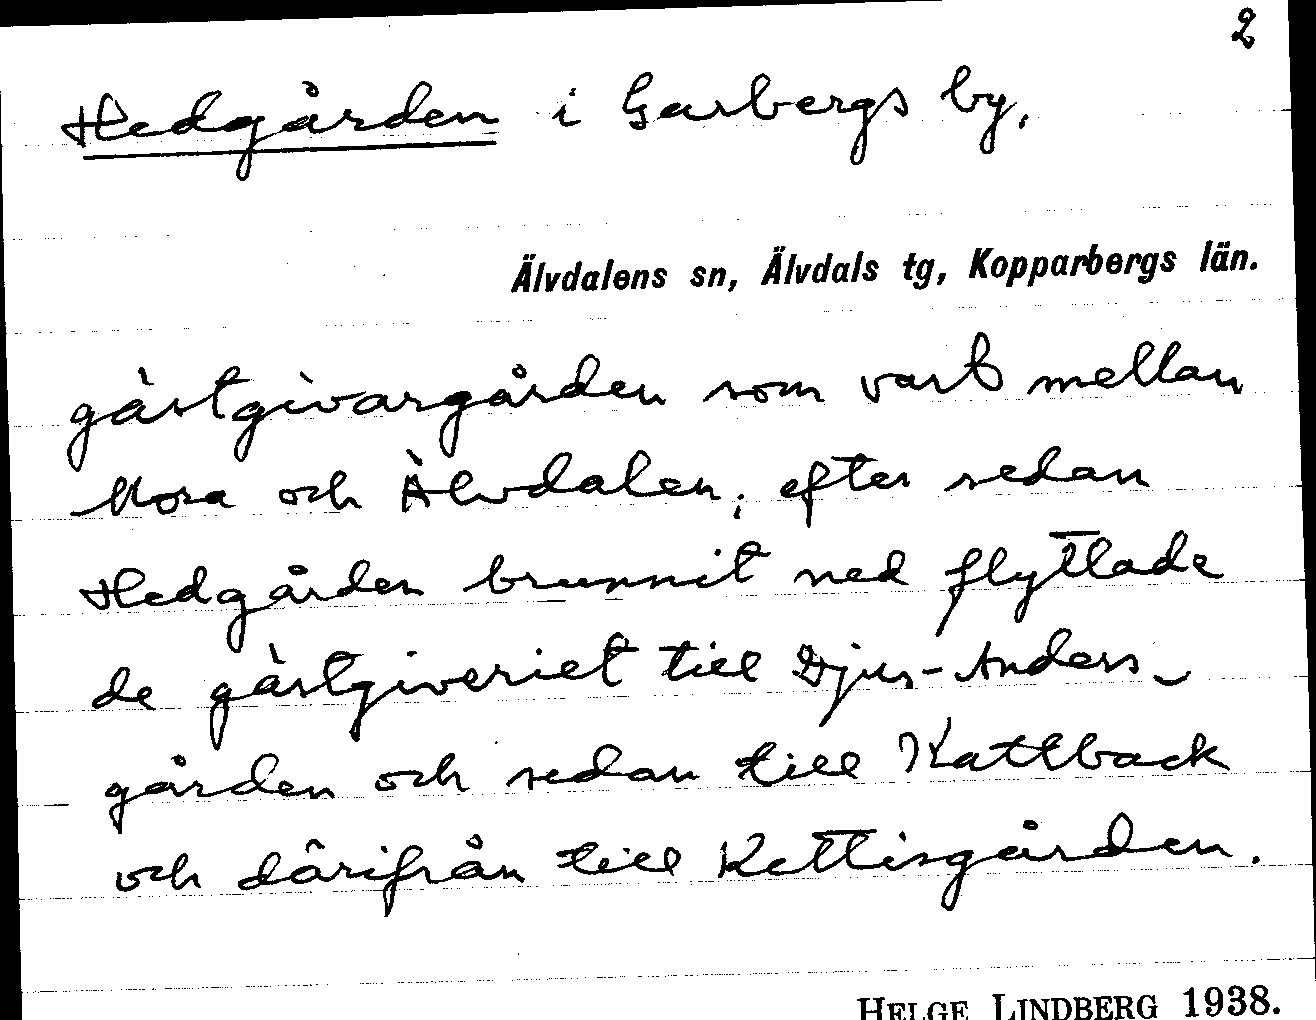 2
Hedgården i Garbergs by.
Älvdalens sn, Älvdals tg, Kopparbergs län.
gästgivargården som vart mellan
Mora och Älvdalen; efter sedan
Hedgården brunnit ned flyttade
de gästgiveriet till Djus-Anders-
gården och sedan till Kattback
och därifrån till Kettisgården.
HELGE LINDBERG 1938.